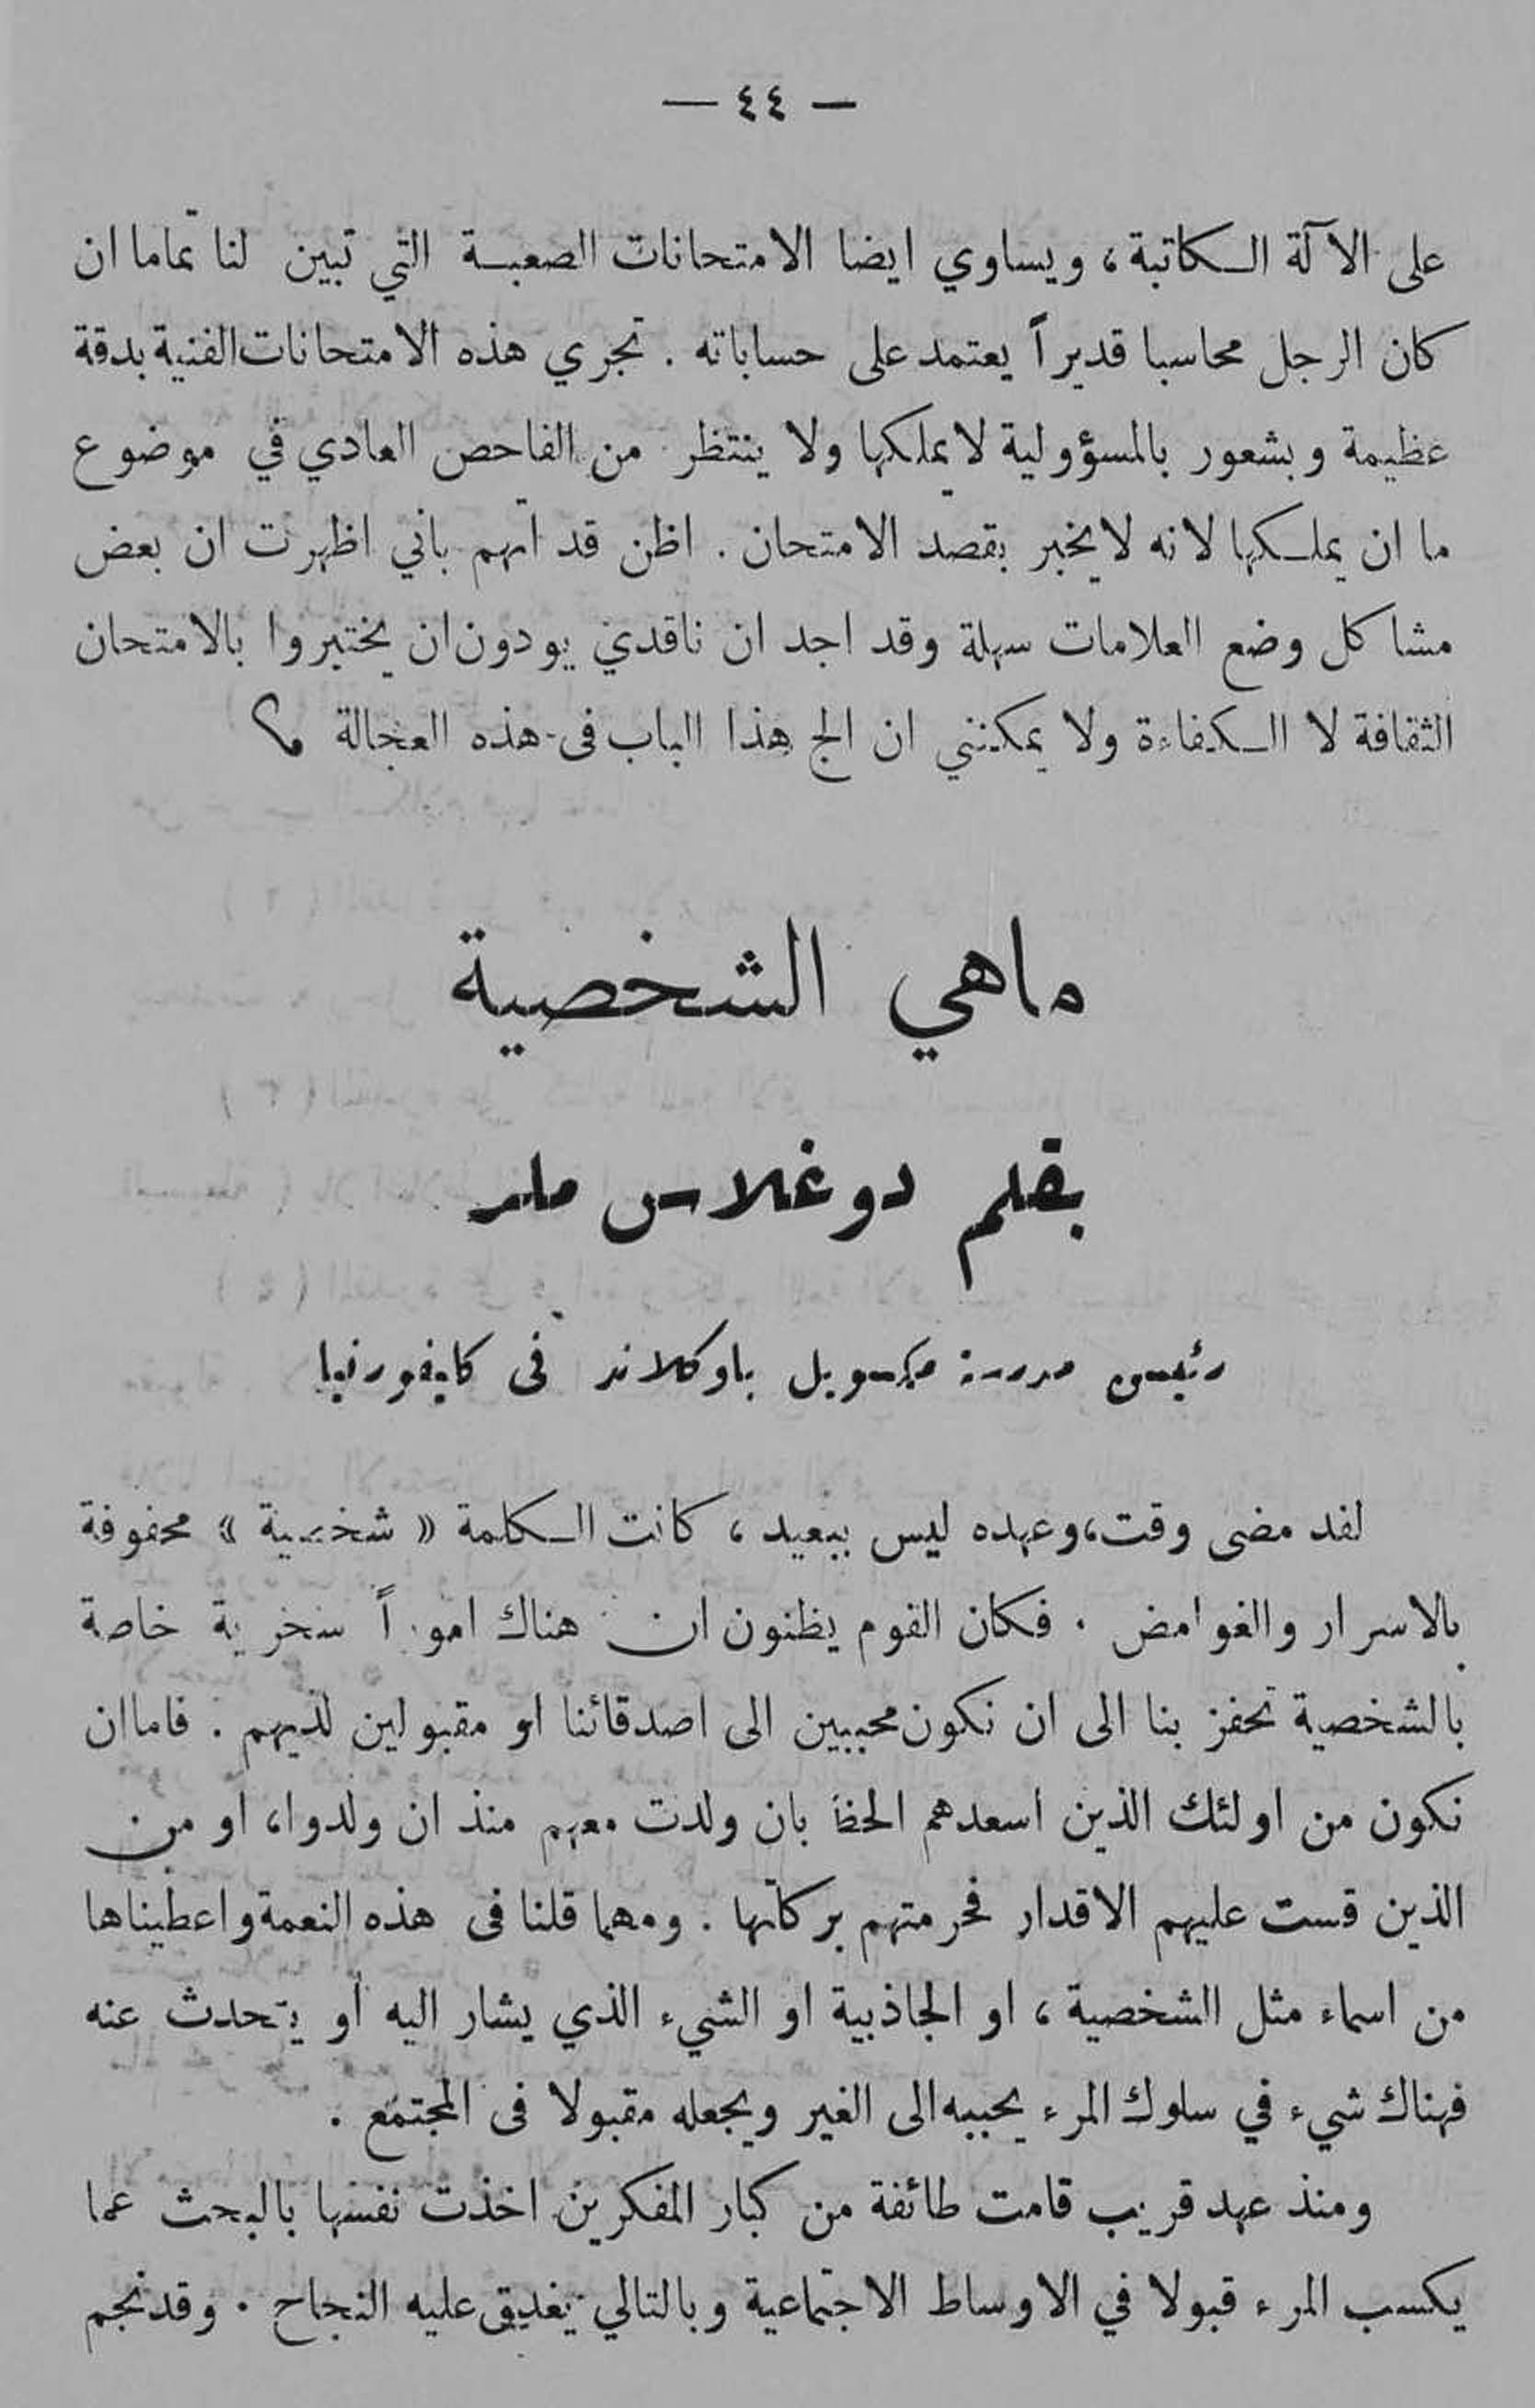 — ٤٤ —
على الآلة الكاتبة، ويساوي ايضا الامتحانات الصعبة التي تبين لنا تماما ان
كان الرجل محاسبا قديراً يعتمد على حساباته . تجري هذه الامتحانات الفنية بدقة
عظيمة وبشعور بالمسؤولية لا يملكها ولا ينتظر من الفاحص العادي في موضوع
ما ان يملكها لانه لا يخبر بقصد الامتحان . اظن قد اتهم باني اظهرت ان بعض
مشاكل وضع العلامات سهلة وقد اجد ان ناقدي يودون ان يختبروا بالامتحان
الثقافة لا الكفاءة ولا يمكنني ان الج هذا الباب فى هذه العجالة
ماهي الشخصية
بقلم دوغلاس ملر
رئيس مدرسة مكسويل باوكلاند فى كايفورنيا
لقد مضى وقت، وعهده ليس ببعيد ، كانت الكلمة « شخصية » محفوفة
بالاسرار والغوامض . فكان القوم يظنون ان هناك اموراً سخرية خاصة
بالشخصية تحفز بنا الى ان نكون محببين الى اصدقائنا او مقبولين لديهم . فاما ان
نكون من اولئك الذين اسعدهم الحظ بان ولدت معهم منذ ان ولدوا، او من
الذين قست عليهم الاقدار فحرمتهم بركاتها . ومهما قلنا فى هذه النعمة واعطيناها
من اسماء مثل الشخصية ، او الجاذبية او الشيء الذي يشار اليه أو يتحدث عنه
فهناك شيء في سلوك المرء يحببه الى الغير ويجعله مقبولا فى المجتمع .
ومنذ عهد قريب قامت طائفة من كبار المفكرين اخذت نفسها بالبحث عما
يكسب المرء قبولا في الاوساط الاجتماعية وبالتالي يغدق عليه النجاح . وقد نجم